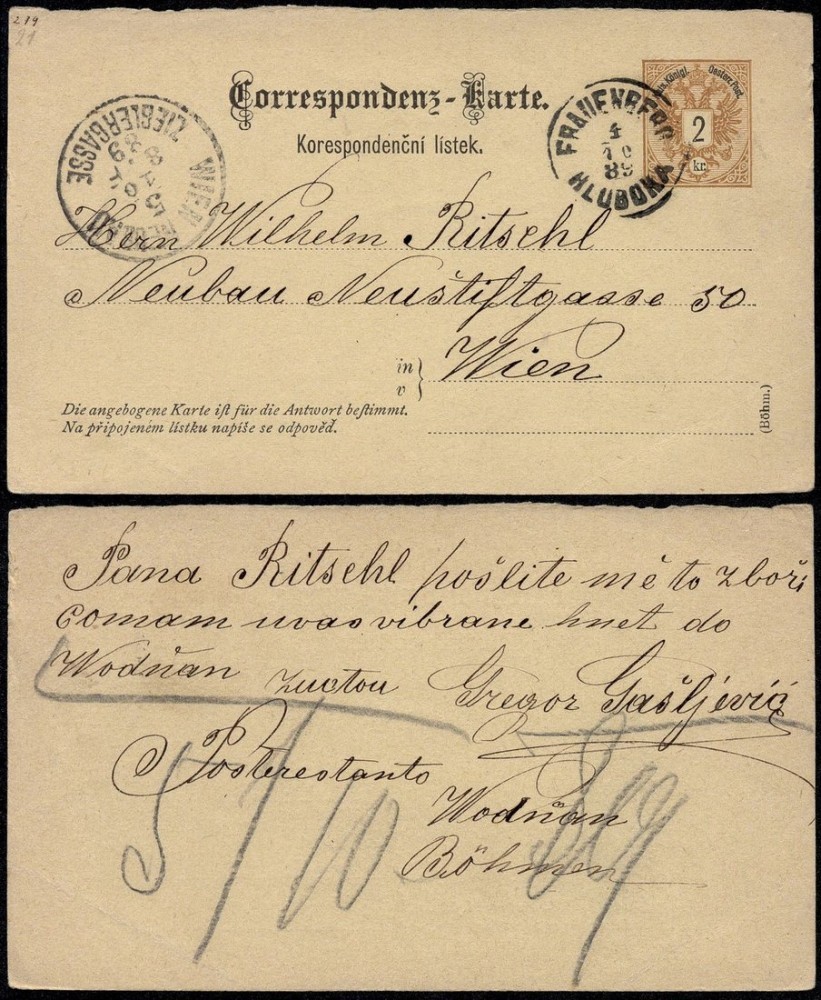 219
21
Correspondenz-Karte.
Korespondenční lístek.
Kön. Königl. Oesterr. Post.
2
kr.
FRAUENBERG
4
10
89
HLUBOKA
WIEN
ZIEGLERGASSE
5
89
Hern Wilhelm Ritschl
Neubau Neuštiftgasse 50
in
v
Wien
Die angebogene Karte iſt für die Antwort beſtimmt.
Na připojeném lístku napíše se odpověď.
(Böhm.)
Pana Ritschl pošlite mě to zboži
comam uvas vibrane hnet do
Wodňan zuctou Gregor Gašljević
Posterestanto
Wodňan
Böhmen
5/10 89